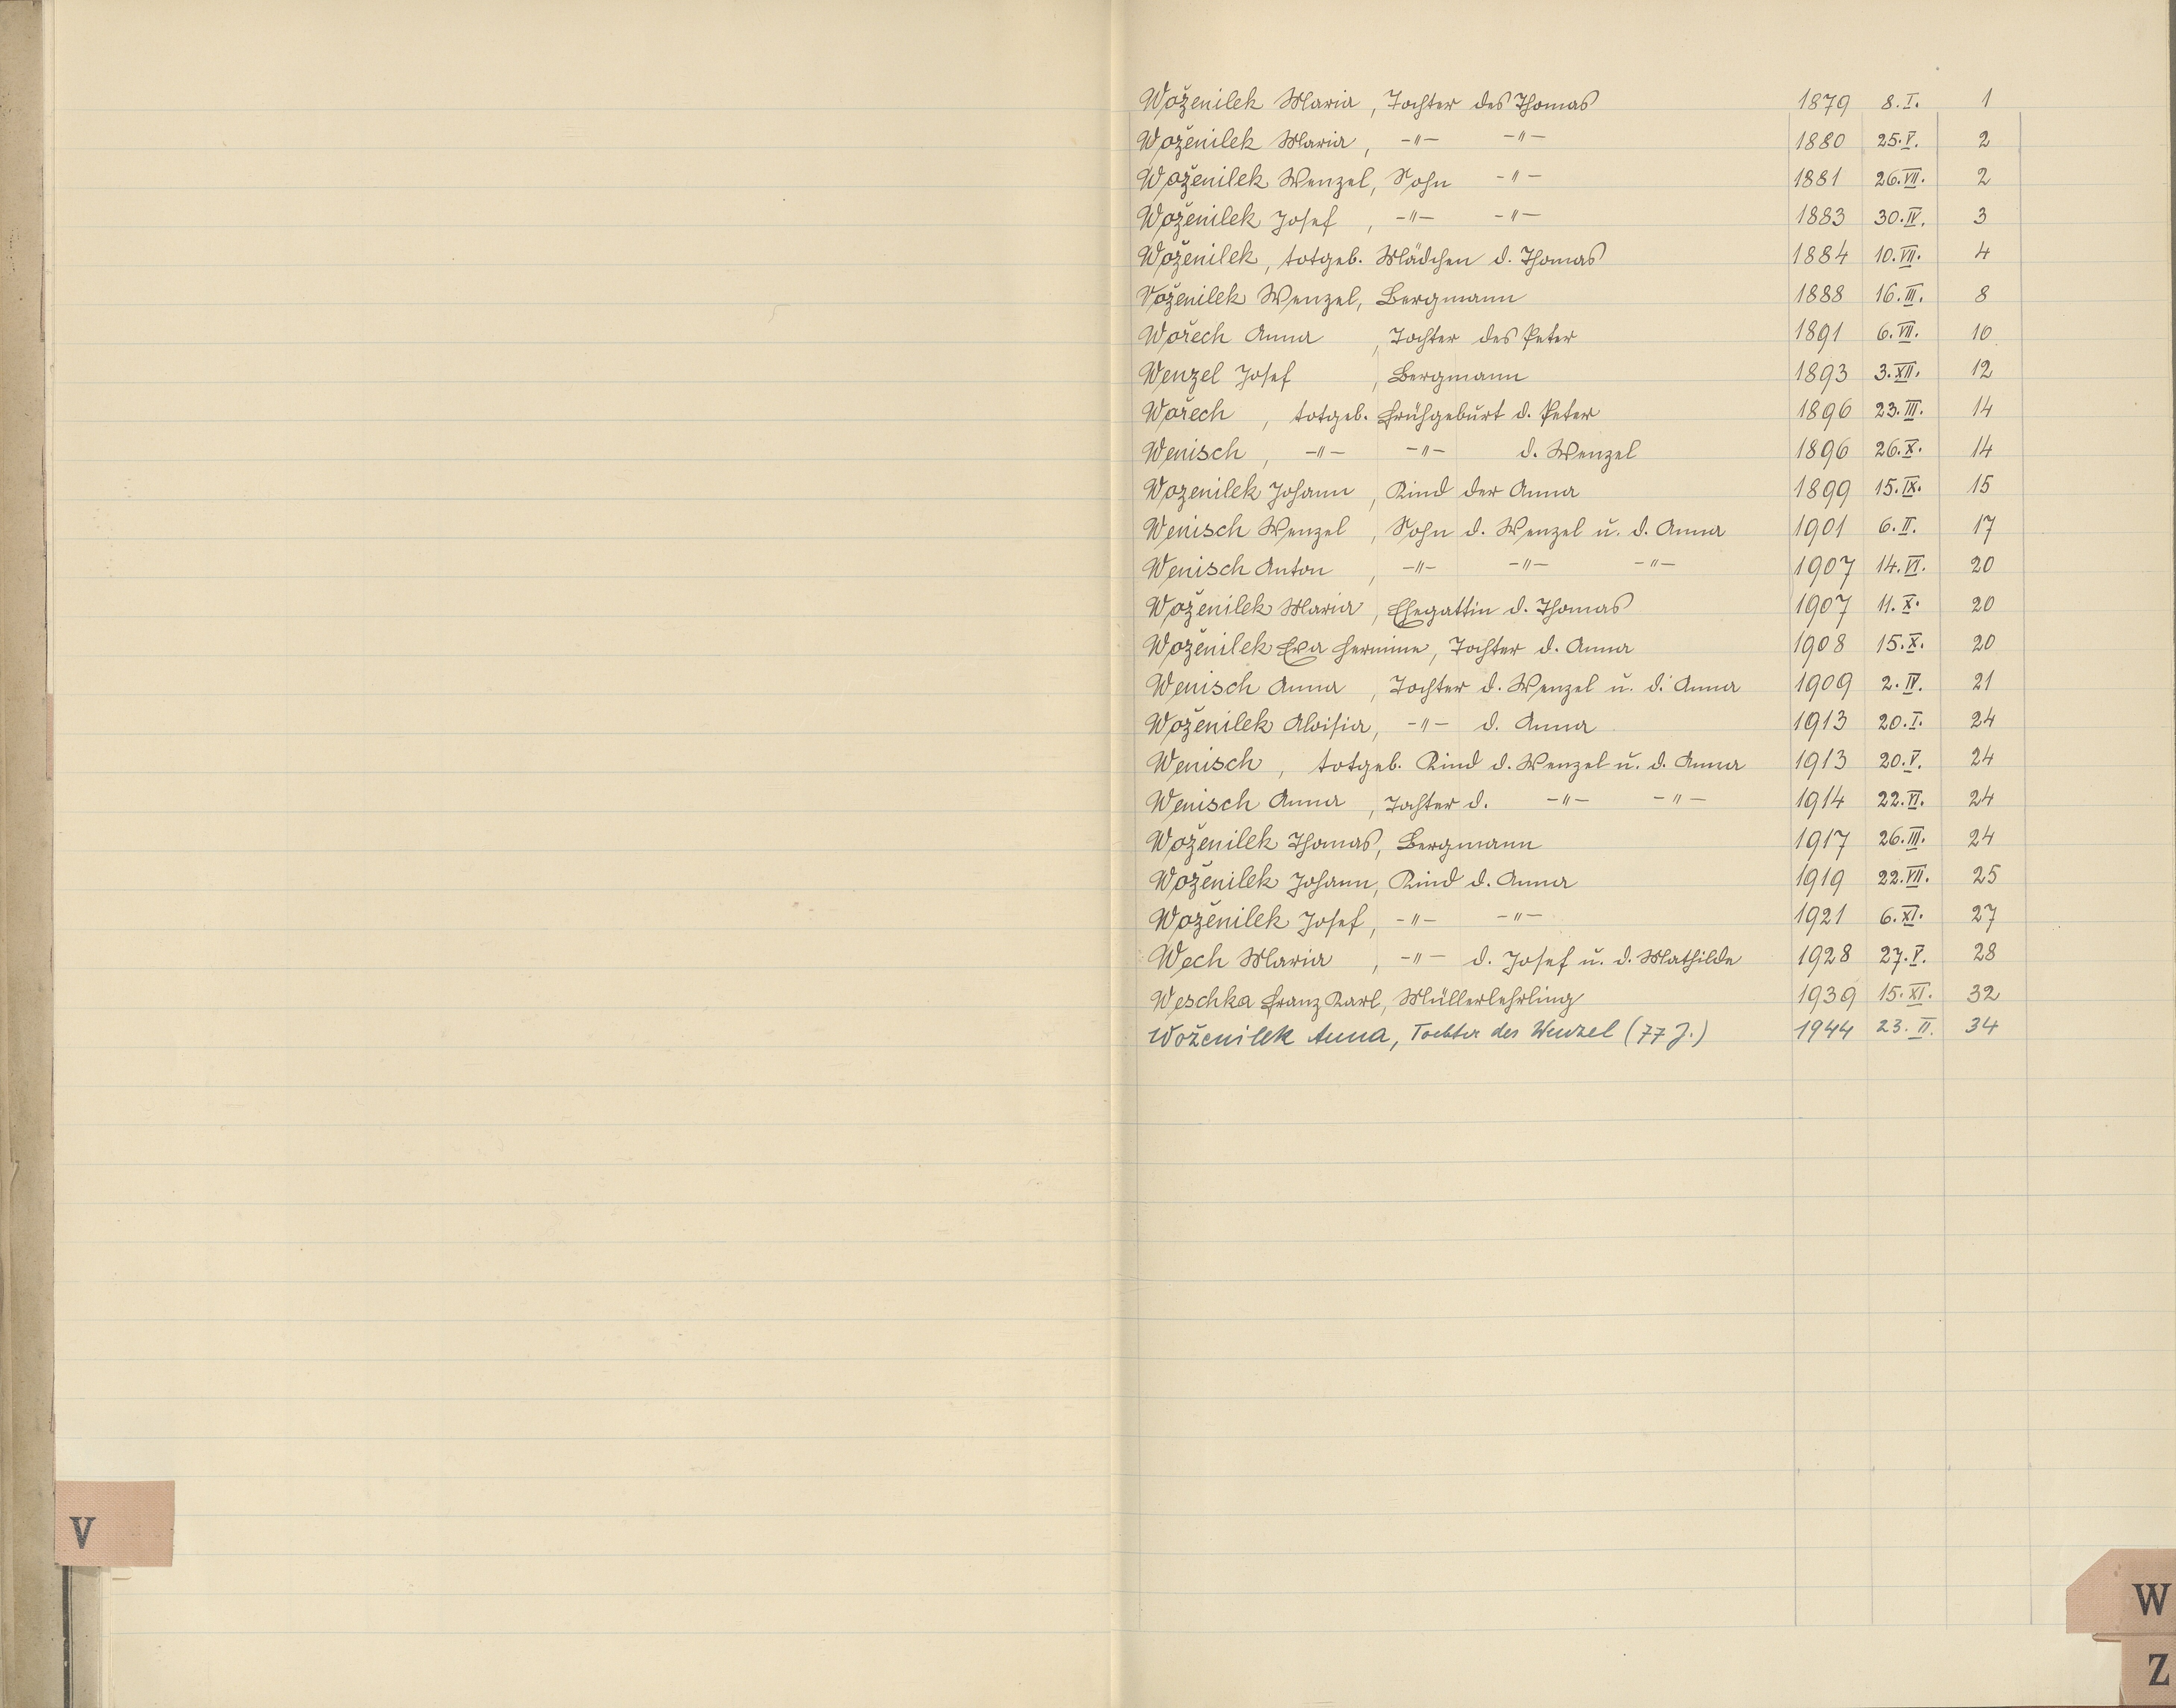 Woženilek Maria, Tochter des Thomas 1879 8.I. 1
Woženilek Maria, -"- -"- 1880 25.V. 2
Woženilek Wenzel, Sohn -"- 1881 26.VII. 2
Woženilek Josef, -"- -"- 1883 30.IV. 3
Woženilek, totgeb. Mädchen d. Thomas 1884 10.VII. 4
Voženilek Wenzel, Bergmann 1888 16.III. 8
Wořech Anna, Tochter des Peter 1891 6.VII. 10
Wenzel Josef, Bergmann 1893 3.XII. 12
Wořech, totgeb. Frühgeburt d. Peter 1896 23.III. 14
Wenisch, -"- -"- d. Wenzel 1896 26.X. 14
Wozenilek Johann, Kind der Anna 1899 15.IX. 15
Wenisch Wenzel, Sohn d. Wenzel u. d. Anna 1901 6.II. 17
Wenisch Anton, -"- -"- -"- 1907 14.VI. 20
Woženilek Maria, Ehegattin d. Thomas 1907 11.X. 20
Woženilek Eva Hermine, Tochter d. Anna 1908 15.X. 20
Wenisch Anna, Tochter d. Wenzel u. d. Anna 1909 2.IV. 21
Woženilek Aloisia, -"- d. Anna 1913 20.I. 24
Wenisch, totgeb. Kind d. Wenzel u. d. Anna 1913 20.V. 24
Wenisch Anna, Tochter d. -"- -"- 1914 22.VI. 24
Woženilek Thomas, Bergmann 1917 26.III. 24
Woženilek Johann, Kind d. Anna 1919 22.VII. 25
Woženilek Josef, -"- -"- 1921 6.XI. 27
Wech Maria, -"- d. Josef u. d. Mathilde 1928 27.V. 28
Weschka Franz Karl, Müllerlehrling 1939 15.XI. 32
Woženilek Anna, Tochter des Wenzel (77 J.) 1944 23.II. 34
V
W
Z